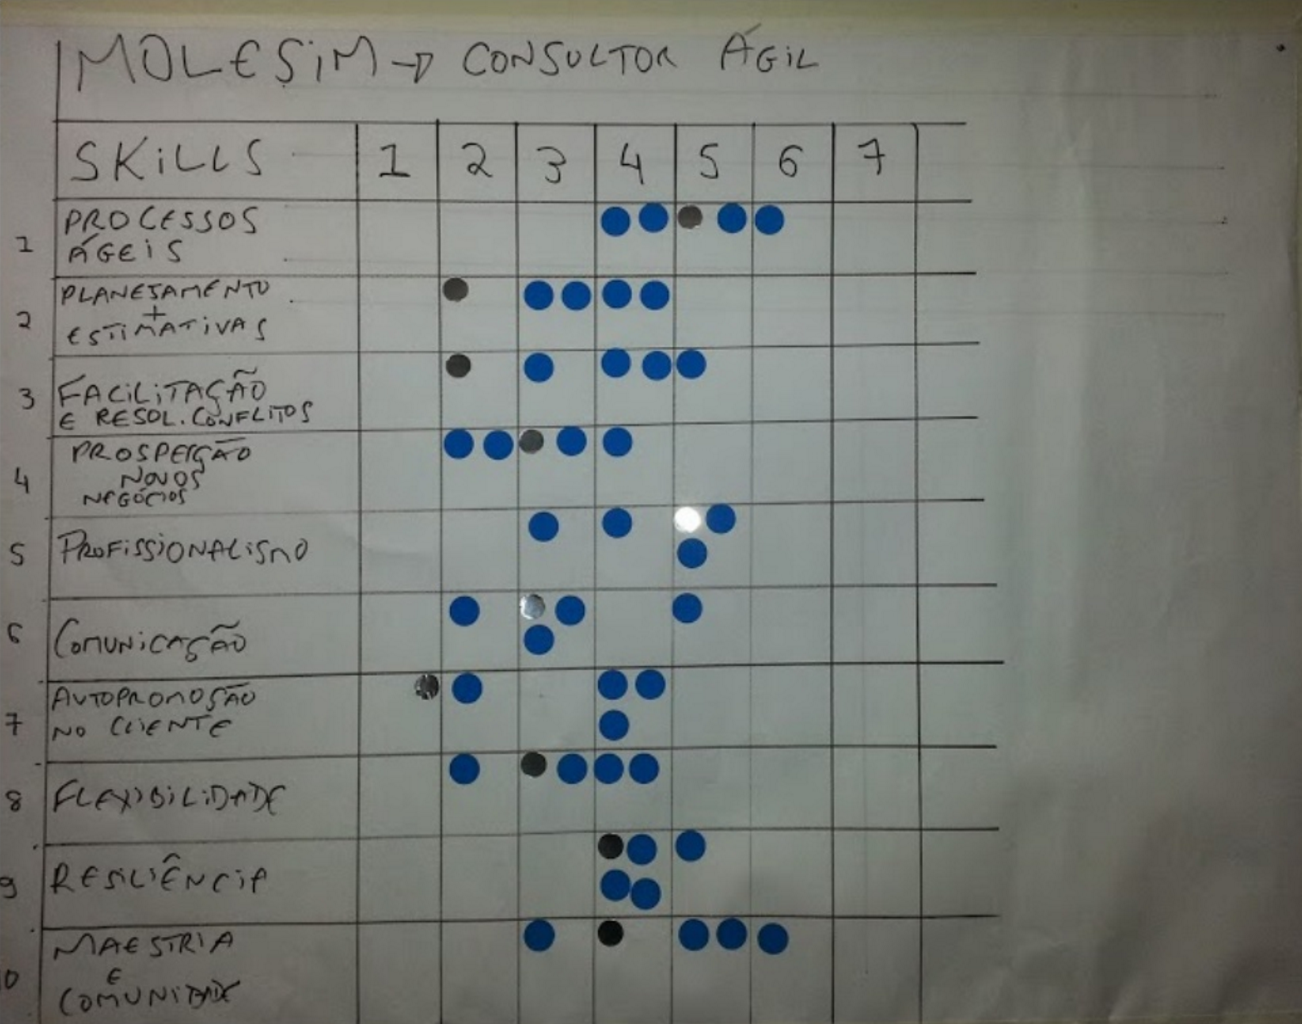 MOLESiM → CONSULTOR ÁGIL
SKiLLS 1 2 3 4 5 6 7
1 PROCESSOS
ÁGEiS
2 PLANEJAMENTO
+
ESTIMATiVAS
3 FACiLiTAÇÃO
E RESOL. CONFLITOS
4 PROSPEÇÃO
NOVOS
NEGÓCIOS
5 PROFiSSiONALiSMO
6 COMUNiCAÇÃO
7 AUTOPROMOÇÃO
NO CLIENTE
8 FLEXIBiLiDADE
9 RESiLiÊNCiA
0 MAESTRIA
E
COMUNiDADE